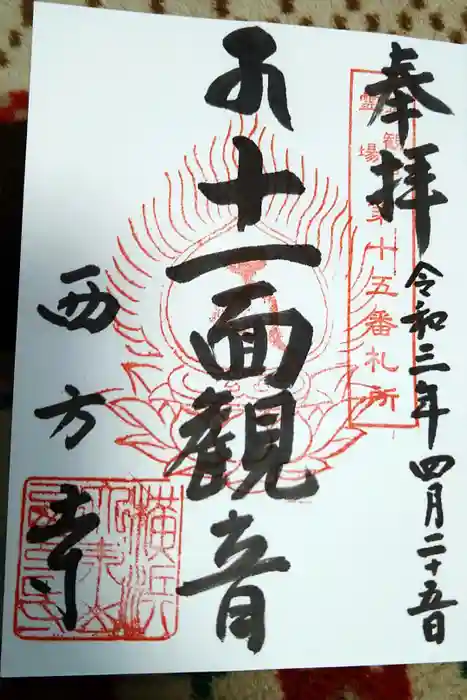 奉拝
令和三年四月二十五日
観音霊場
第十五番札所
十一面観音
西方寺
横浜